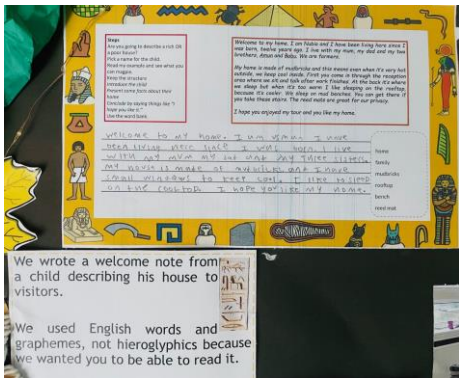 Steps
Are you going to describe a rich OR
a poor house?
Pick a name for the child.
Read my example and see what you
can magpie.
Keep the structure
Introduce the child
Present some facts about their
home
Conclude by saying things like "I
hope you like it."
Use the word bank.
Welcome to my home. I am Nabia and I have been living here since I
was born, twelve years ago. I live with my mum, my dad and my two
brothers, Amun and Babu. We are farmers.
My home is made of mudbricks and this means even when it's very hot
outside, we keep cool inside. First you come in through the reception
area where we sit and talk after work finished. At the back it's where
we sleep but when it's too warm I like sleeping on the rooftop,
because it's cooler. We sleep on mud benches. You can get there if
you take these stairs. The reed mats are great for our privacy.
I hope you enjoyed my tour and you like my home.
welcome to my home. I am I have
been living here since I was born. I live
with my mum my dad and my three sisters.
my house is made of mudbricks and I have
small windows to keep cool. I like to sleep
on the rooftop I hope you like my home.
home
family
mudbricks
rooftop
bench
reed mat
We wrote a welcome note from
a child describing his house to
visitors.
We used English words and
graphemes, not hieroglyphics because
we wanted you to be able to read it.